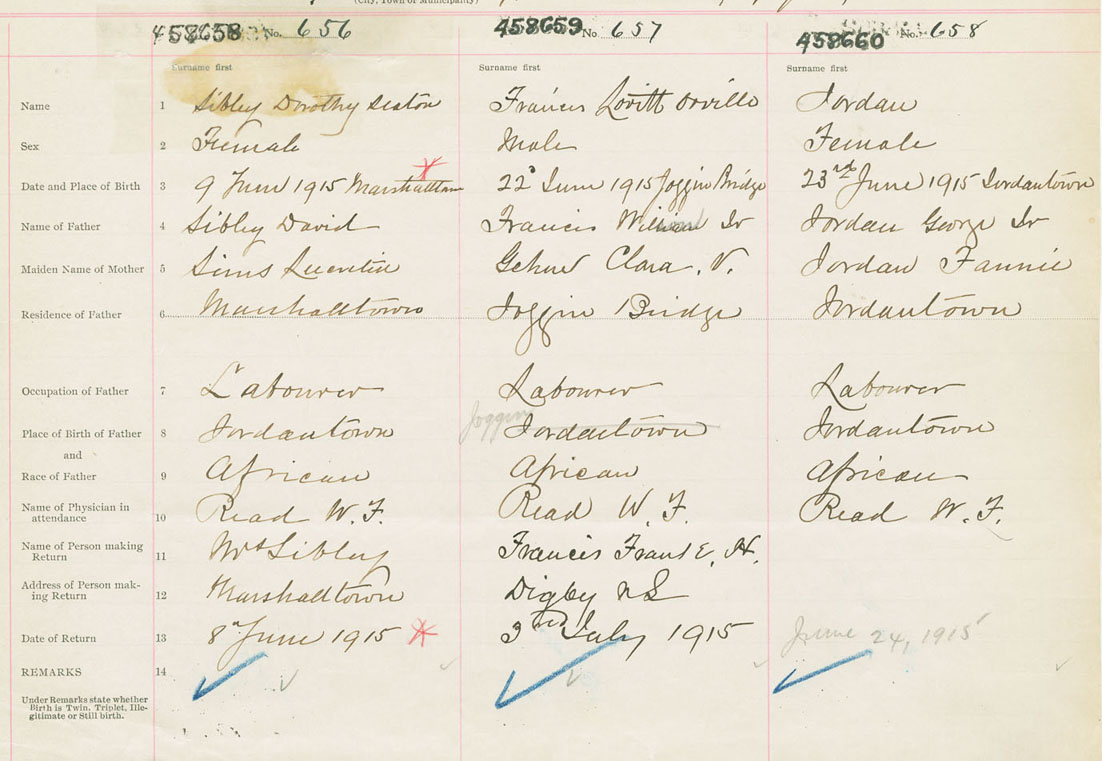 (City, Town or Municipality)
458658 No. 656 458659 No. 657 458660 No. 658
Surname first Surname first Surname first
Name 1 Sibley Dorothy Seaton Francis Lovitt Orville Jordan
Sex 2 Female Male Female
Date and Place of Birth 3 9 June 1915 Marshalltown 22" June 1915 Joggin Bridge 23rd June 1915 Jordantown
Name of Father 4 Sibley David Francis Jr Jordan George Jr
Maiden Name of Mother 5 Sims Lucretia Clara. V. Jordan Fannie
Residence of Father 6 Marshalltown Joggin Bridge Jordantown
Occupation of Father 7 Labourer Labourer Labourer
Joggin
Place of Birth of Father 8 Jordantown Jordantown Jordantown
and
Race of Father 9 African African African
Name of Physician in
attendance 10 Read W. F. Read W. F. Read W. F.
Name of Person making
Return 11 Mrs Sibley Francis Frank E. H.
Address of Person mak-
ing Return 12 Marshalltown Digby NS
Date of Return 13 8" June 1915 3rd July 1915 June 24, 1915
REMARKS 14
Under Remarks state whether
Birth is Twin, Triplet, Ille-
gitimate or Still birth.